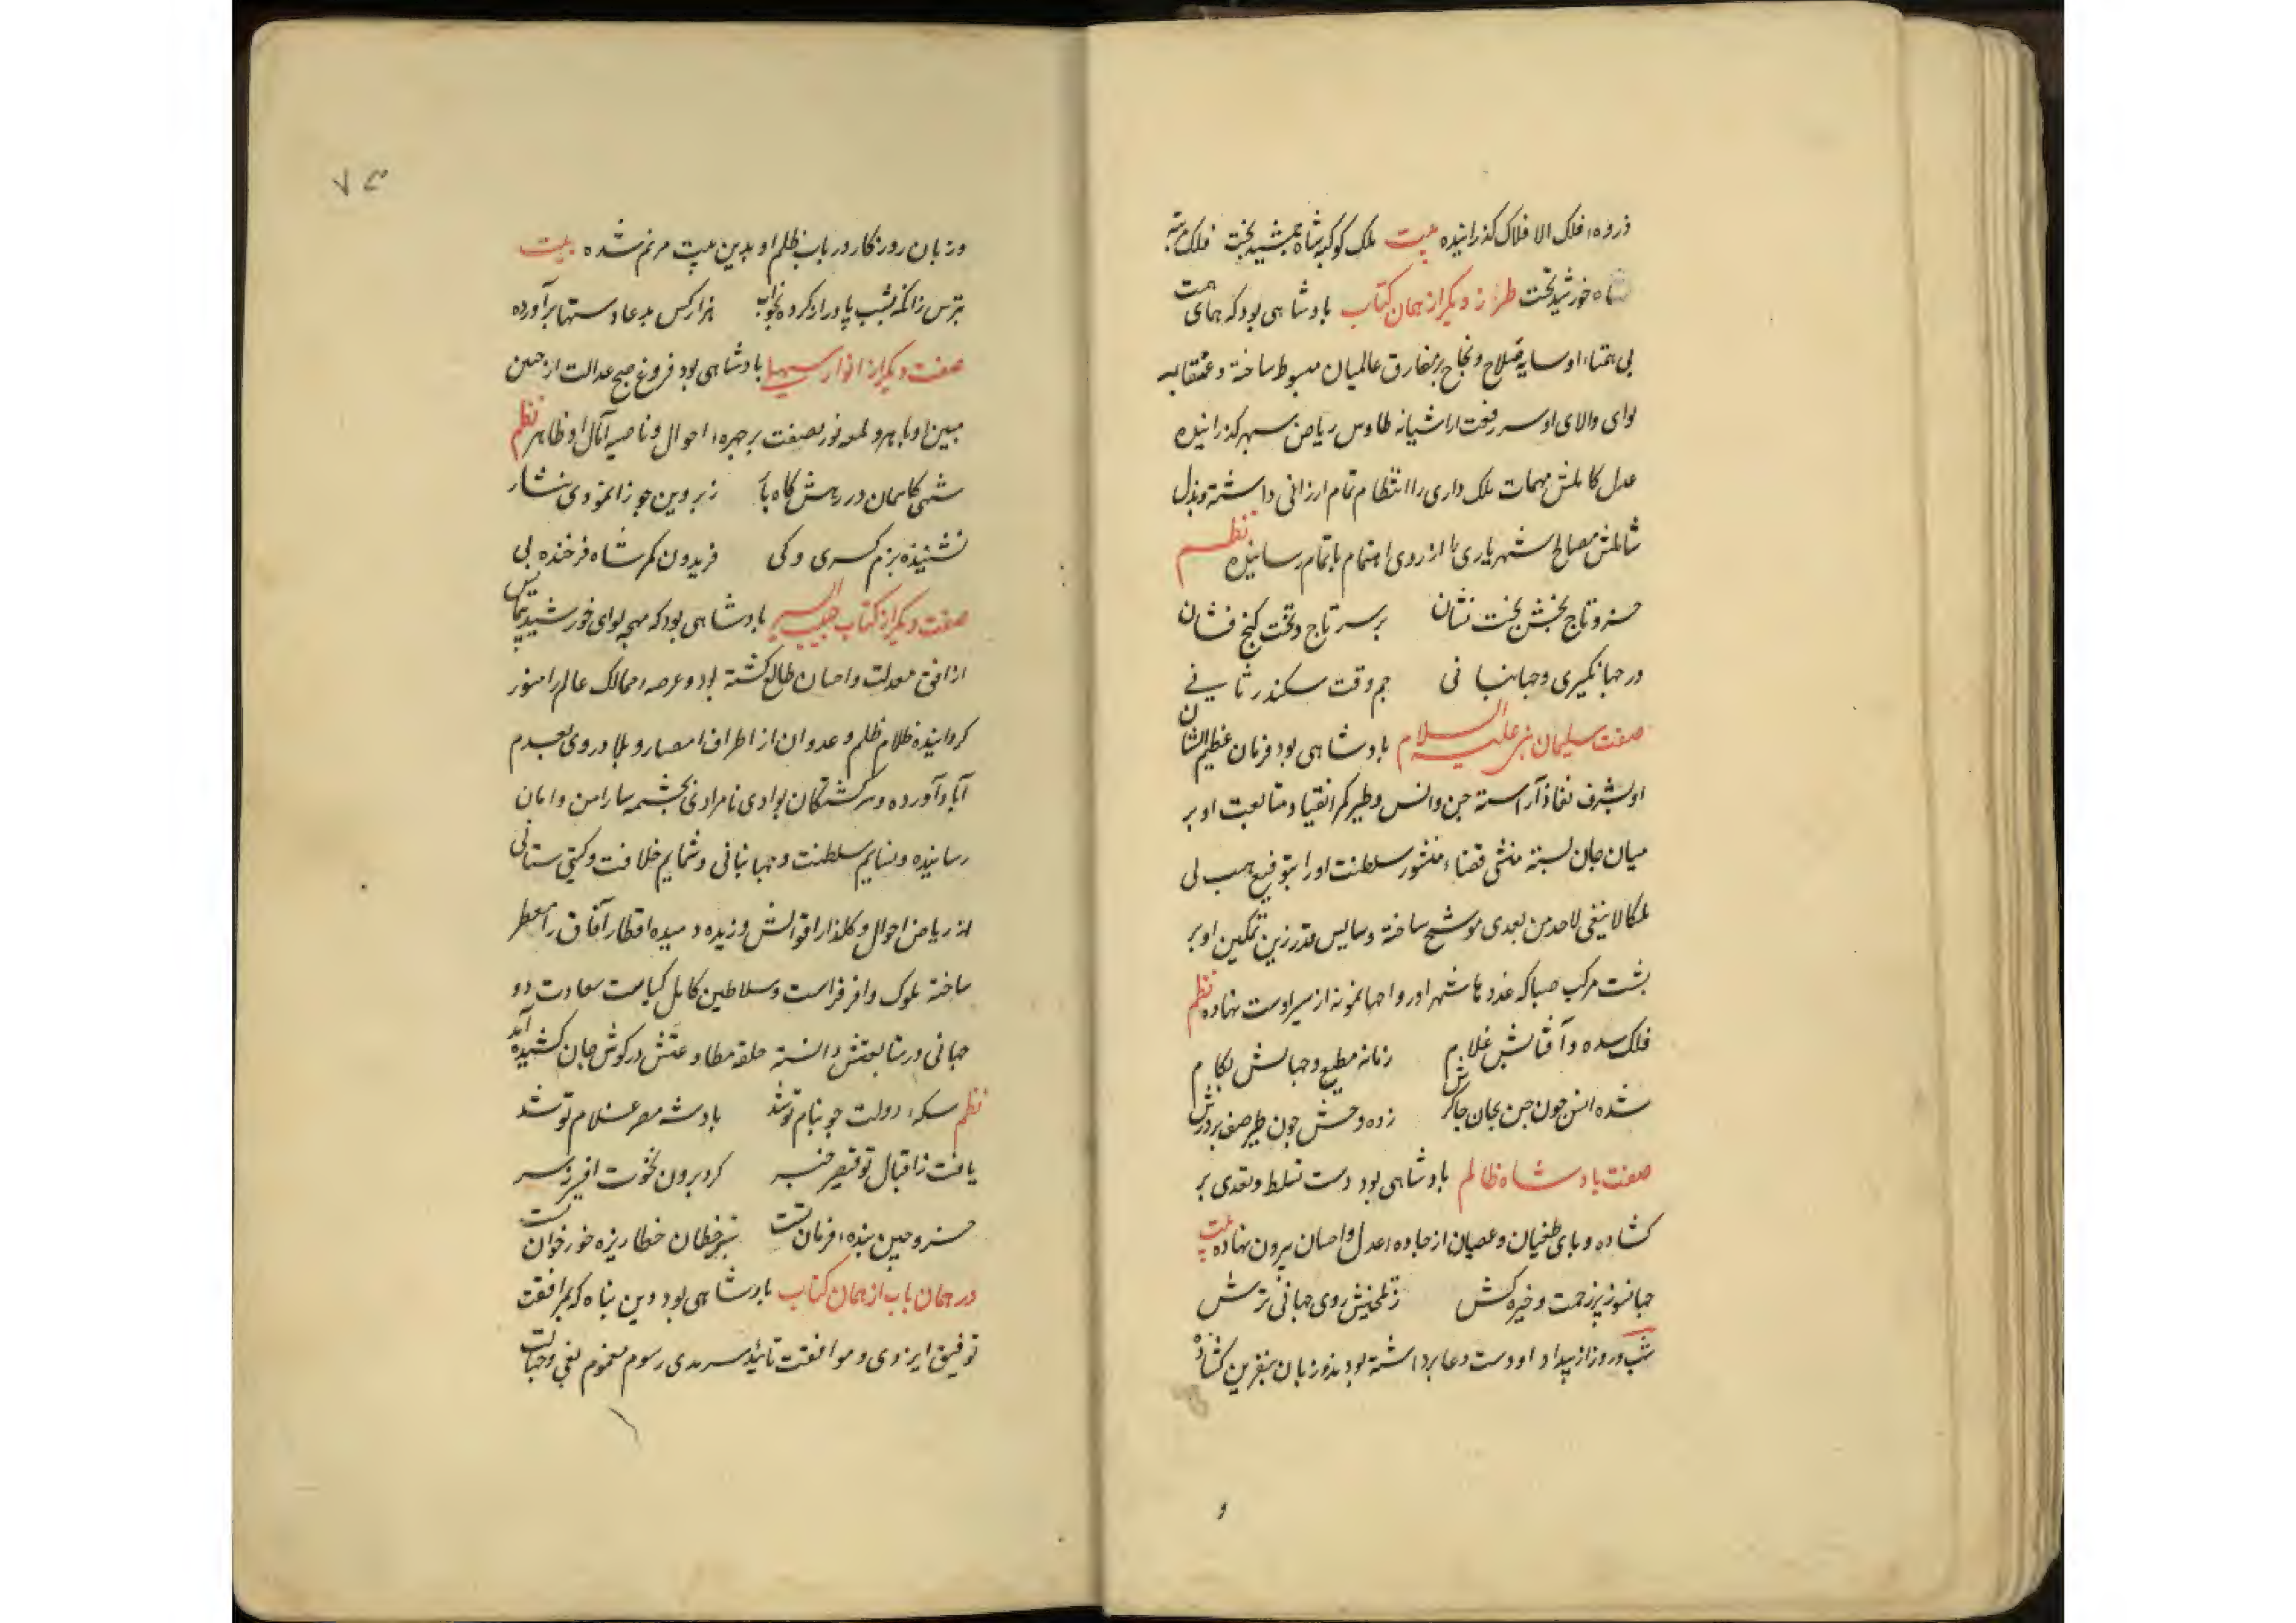 ذروهٔ فلک الافلاک کذرانیده بیت ملک کوکبه شاه جمشید بخت فلک مرتبه
شاه خورشید تخت طراز دیکر از همان کتاب پادشاهی بود که همای همت
بی همتاء او سایه فلاح و نجاح بر مفارق عالمیان مبسوط ساخته و عنقابه
لوای والای او سر رفعت از اشیانه طاوس ریاض سپهر کذرانیده
عدل کاملش مهمات ملک داری را انتظام تمام ارزانی داشته و بذل
شاملش مصالح شهریاری را از روی اهتمام باتمام رسانیده نظم
خسرو تاج بخش تخت نشان بر سر تاج و تخت کنج فشان
در جهانکیری و جهانبانی جم وقت سکندر ثانی
صفت سلیمان نبی علیه السلام پادشاهی بود فرمان عظیم الشان
او بشرف نفاذ آراسته جن و انس و طیر کمر انقیاد و متابعت او بر
میان جان بسته منشی قضاء منشور سلطنت او را بتوقیع هب لی
ملکا لا ینبغی لاحد من بعدی موشح ساخته و سایس قدر زین تمکین او بر
پشت مرکب صبا که غدوها شهر و رواحها نمونه از سیر اوست نهاده نظم
فلک سده و آفتابش غلام زمانه مطیع و جهانش بکام
شده انس چون جن بجان چاکرش زده وحش چون طیر صف بر درش
صفت پادشاه ظالم پادشاهی بود دست تسلط و تعدی بر
کشاده و پای طغیان و عصیان از جادهٔ عدل و احسان بیرون نهاده بیت
جهانسوز بیرحمت و خیره کش ز تلخیش روی جهانی ترش
شب و روز از بیداد او دست دعا برداشته بودند و زبان بنفرین کشاده
۷۳
و زبان روزکار در باب ظلم او بدین بیت مرنم شده بیت
بترس زانکه بشب پا دراز کرده بخواب هزار کس بدعا دستها برآورده
صفت دیکر از انوار سهیلی پادشاهی بود فروغ صبح عدالت از جبین
مبین او باهر و لمعه نور نصفت بر چهرهٔ احوال و ناصیه آمال او ظاهر نظم
شهی کاسمان در رهش کاه بار ز پروین جوزا نمودی نثار
نشیننده بزم کسری و کی فریدون کمر شاه فرخنده پی
صفت دیکر از کتاب حبیب السیر پادشاهی بود که مهجه لوای خورشید تمایش
از افق معدلت و احسان طالع کشته بود و عرصه ممالک عالم را منور
کردانیده ظلام ظلم و عدوان از اطراف امصار و بلاد روی بعدم
آباد آورده و سرکشتکان بوادی نامرادی بچشمه سار امن و امان
رسانیده و نسایم سلطنت و جهانبانی و شمایم خلافت و کیتی ستانی
از ریاض احوال و کلذار اقوالش وزیده و میده اقطار آفاق را معطر
ساخته ملوک وافر فراست و سلاطین کامل کیاست سعادت دو
جهانی در متابعتش دانسته حلقه مطاوعتش در کوش جان کشیده‌اند
نظم سکهٔ دولت چو بنام تو شد پادشه مصر غلام تو شد
یافت ز اقبال تو قیصر خبر کرد برون نخوت افسر ز سر
خسرو چین بندهٔ فرمان تست شیر خطان خطا ریزه خور خوان تست
در همان باب از همان کتاب پادشاهی بود دین پناه که بمرافقت
توفیق ایزدی و موافقت تائید سرمدی رسوم مذموم بغی و جهالت